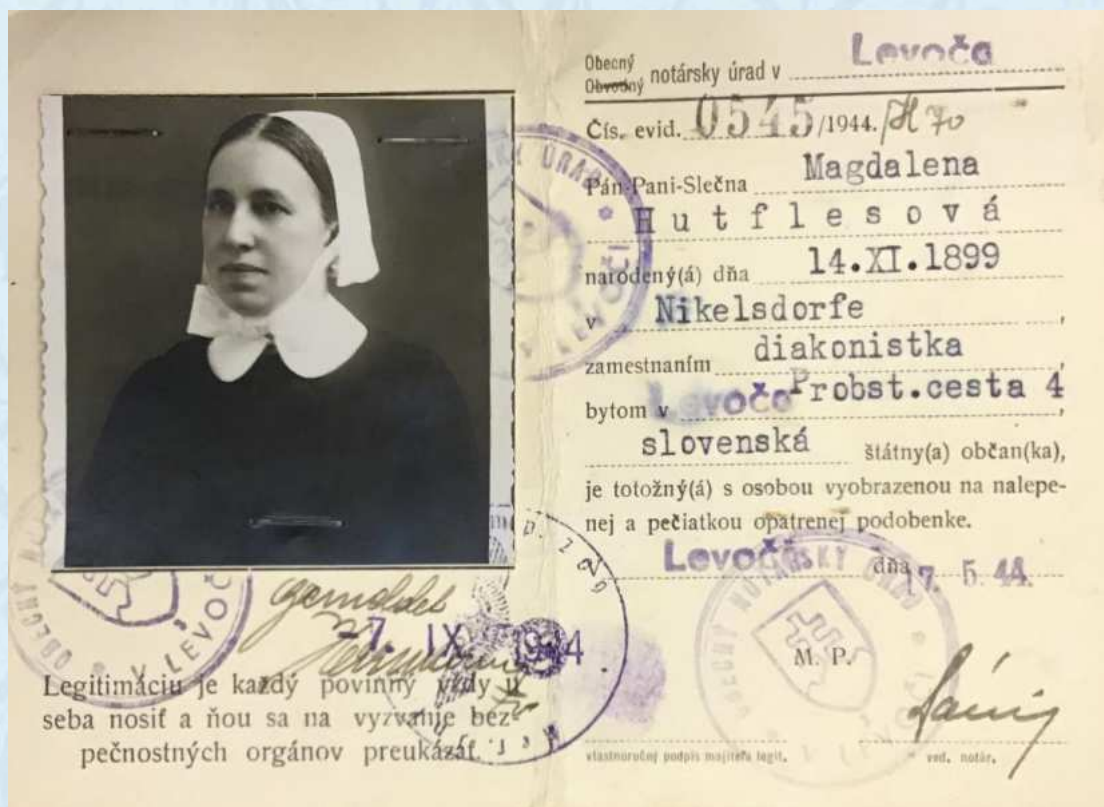 Obecný
Obvodný notársky úrad v Levoča
Čís. evid. 0545/1944.
Pán-Pani-Slečna Magdalena
Hutflesová
narodený(á) dňa 14.XI.1899
v Nikelsdorfe,
zamestnaním diakonistka,
bytom v Levoča Probst.cesta 4,
slovenská štátny(a) občan(ka),
je totožný(á) s osobou vyobrazenou na nalepe-
nej a pečiatkou opatrenej podobenke.
Levoča dňa 17. 5. 44.
M. P.
vlastnoručný podpis majiteľa legit.
ved. notár.
OBECNÝ NOTÁRSKY ÚRAD * V LEVOČI *
V LEVOČI
gemeldet
-7. IX. 1944
Legitimáciu je každý povinný vždy u
seba nosiť a ňou sa na vyzvanie bez-
pečnostných orgánov preukázať.